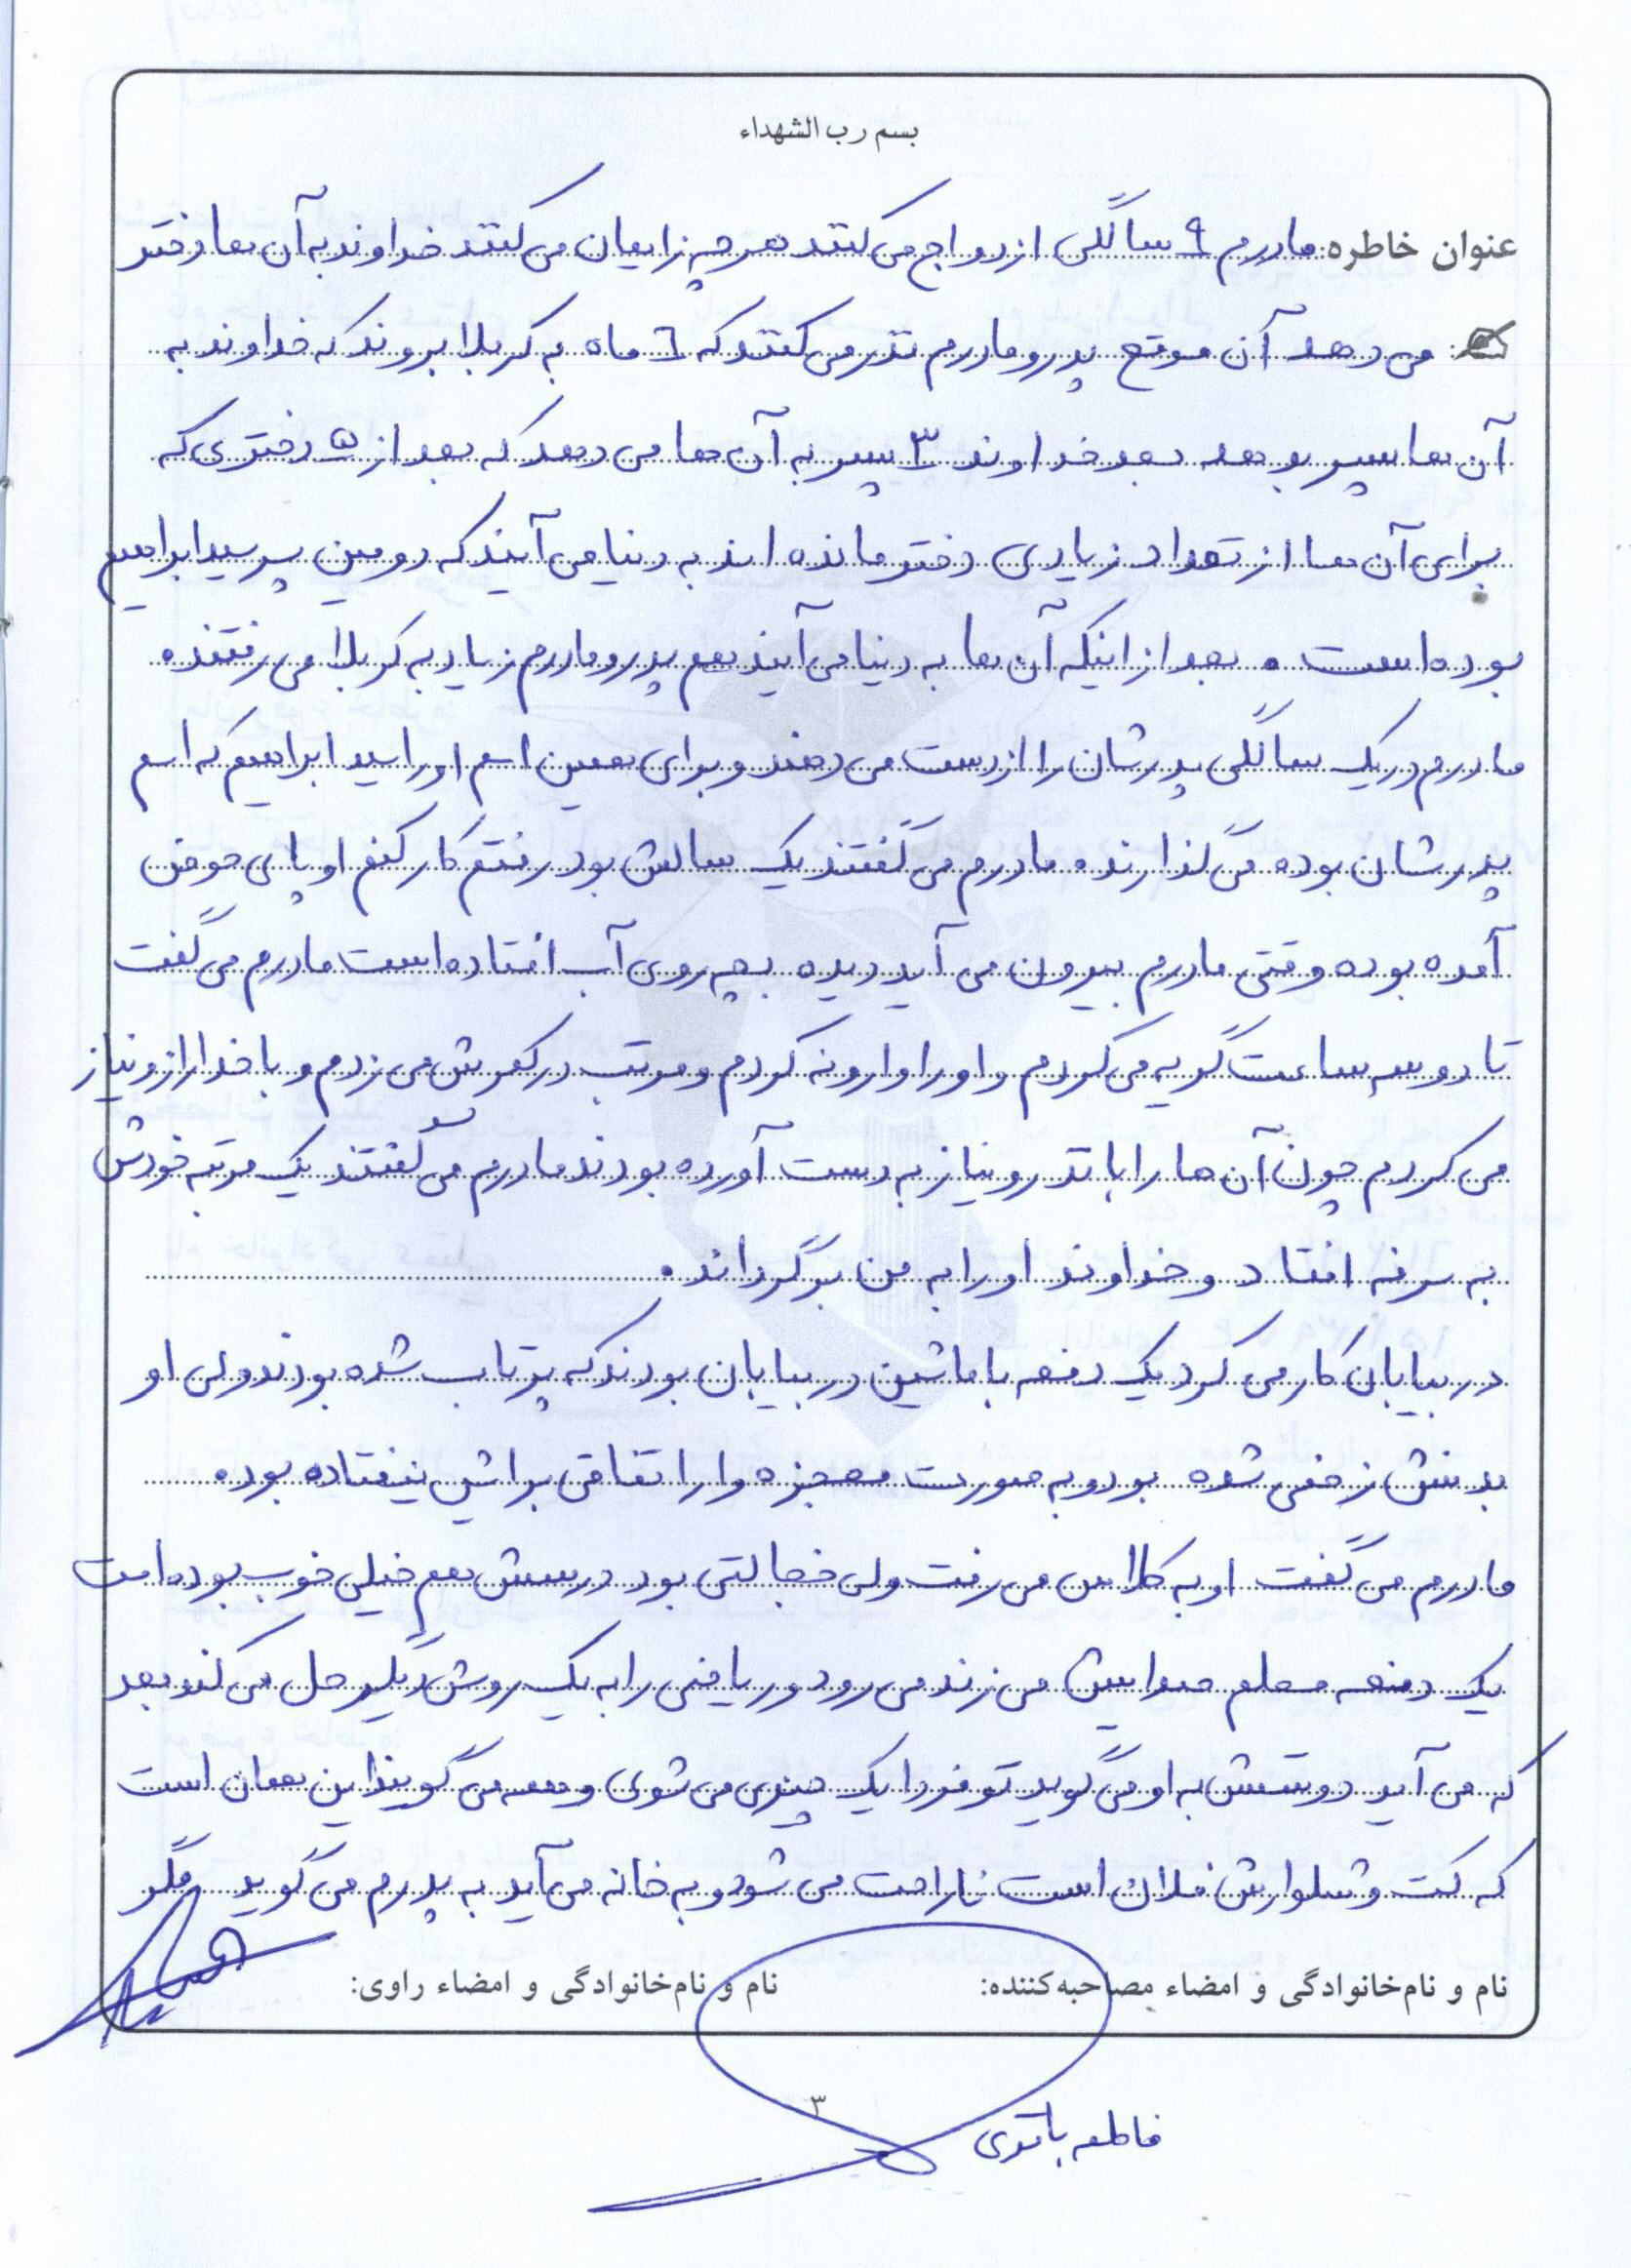 بسم رب الشهداء
عنوان خاطره: مادرم ۹ سالگی ازدواج می کنند هر چه زایمان می کنند خداوند به آن ها دختر
می دهد آن موقع پدر و مادرم نذر می کنند که ٦ ماه به کربلا بروند که خداوند به
آن ها پسر بدهد بعد خداوند ۳ پسر به آن ها می دهد که بعد از ۵ دختری که
برای آن ها از تعداد زیادی دختر مانده اند به دنیا می آیند که دومین پسر سید ابراهیم
بوده است . بعد از اینکه آن ها به دنیا می آیند هم پدر و مادرم زیاد به کربلا می رفتند.
مادرم در یک سالگی پدرشان را از دست می دهند و برای همین اسم او را سید ابراهیم که اسم
پدرشان بوده می گذارند. مادرم می گفتند یک سالش بود رفتم کار کنم او پای حوض
آمده بوده وقتی مادرم بیرون می آید دیده بچه روی آب افتاده است مادرم می گفت
تا دو سه ساعت گریه می کردم و او را وارونه کردم و مرتب در کمرش می زدم و با خدا راز و نیاز
می کردم چون آن ها را با نذر و نیاز به دست آورده بودند مادرم می گفتند یک مرتبه خودش
به سرفه افتاد و خداوند او را به من برگرداند.
در بیابان کار می کرد یک دفعه با ماشین در بیابان بودند که پرتاب شده بودند ولی او
بدنش زخمی شده بود و به صورت معجزه وار اتفاقی براش نیفتاده بود.
مادرم می گفت او به کلاس می رفت ولی خجالتی بود درسش هم خیلی خوب بوده است
یک دفعه معلم صدایش می زند می رود و ریاضی را به یک روش دیگر حل می کند بعد
که می آید دوستش به او می گوید تو فردا یک چیزی می شوی و همه می گویند این همان است
که کت و شلوارش فلان است ناراحت می شود و به خانه می آید به پدرم می گوید مگر
نام و نام‌خانوادگی و امضاء مصاحبه‌کننده: نام و نام‌خانوادگی و امضاء راوی:
۳
فاطمه باقری